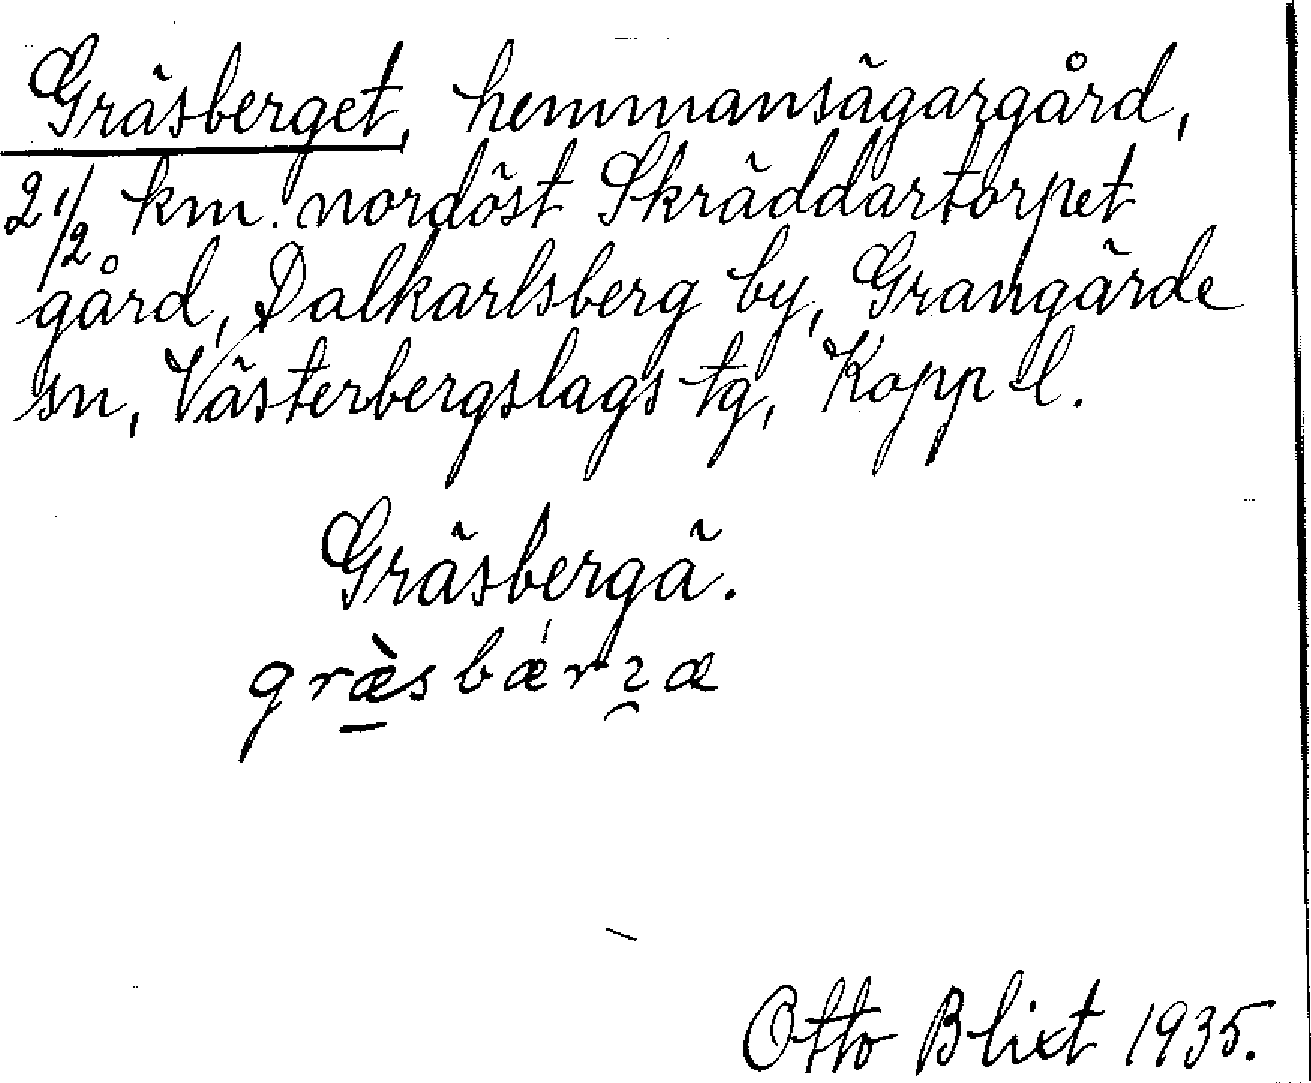 Gräsberget, hemmansägargård,
2 1/2 km. nordöst Skräddartorpet
gård, Dalkarlsberg by, Grangärde
sn, Västerbergslags tg, Kopp l.
Gräsbergä.
Otto Blixt 1935.